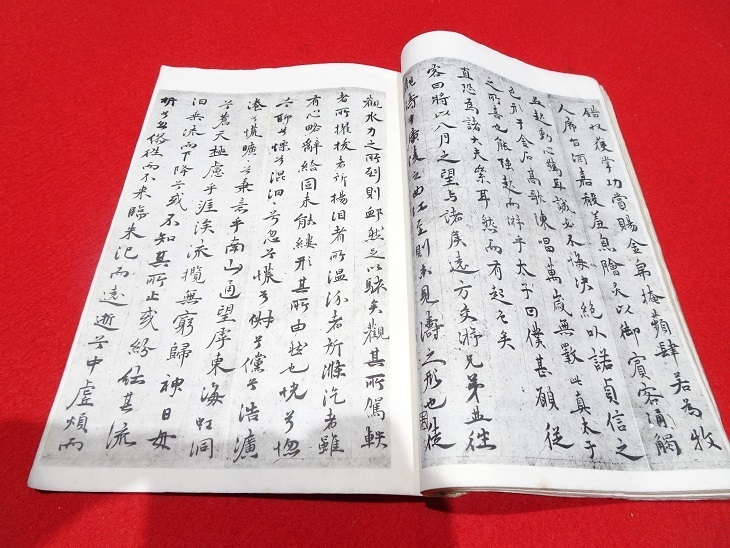 錯收獲掌功賞賜金帛掩蘋肆若為牧
人席旨酒嘉殽羞炰膾炙以御賓客涌觸
並起動心驚耳誠必不悔決絕以諾貞信之
色形于金石高歌陳唱萬歲無斁此真太子
之所喜也能強起而游乎太子曰僕甚願從
直恐為諸大夫累耳然而有起色矣
客曰將以八月之望与諸侯遠方交游兄弟並往
觀濤乎廣陵之曲江至則未見濤之形也徒
觀水力之所到則卹然足以駭矣觀其所駕軼
者所擢拔者所揚汩者所溫汾者所滌汔者雖
有心略辭給固未能縷形其所由然也怳兮惚
兮聊兮慄兮混汩汩兮忽兮慌兮俶兮儻兮浩瀇
瀁兮慌曠曠兮秉意乎南山通望虖東海虹洞
兮蒼天極慮乎涯涘流攬無窮歸神日母
汩乘流而下降兮或不知其所止或紛紜其流
折兮忽繆往而不來臨朱汜而遠逝兮中虛煩而